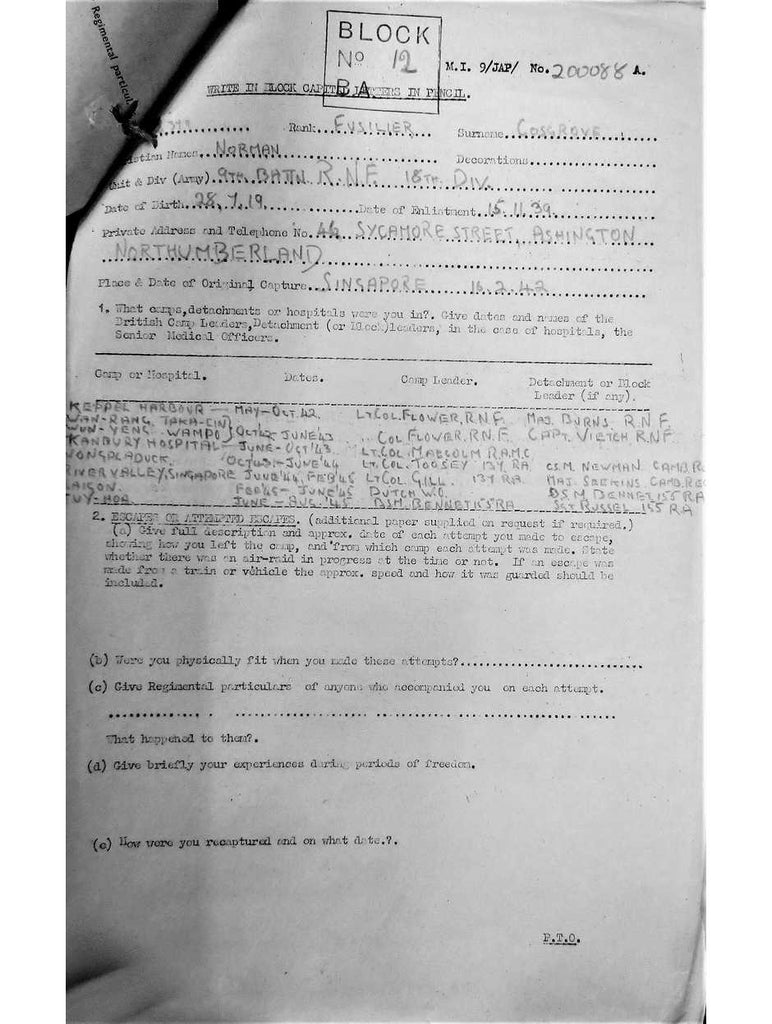 Regimental particul
BLOCK
No 12
BA
M.I. 9/JAP/ No. 200088 A.
WRITE IN BLOCK CAPITAL LETTERS IN PENCIL.
Rank...FUSILIER Surname COSGROVE
istian Names..NORMAN Decorations
nit & Div (Army).9TH BATTN R.N.F. 18TH DIV.
Date of Birth.28.7.19 Date of Enlistment.15.11.39.
Private Address and Telephone No.46, SYCAMORE STREET, ASHINGTON
NORTHUMBERLAND
Place & Date of Original Capture..SINGAPORE 16.2.42
1. What camps,detachments or hospitals were you in?. Give dates and names of the
British Camp Leaders,Detachment (or Block)leaders, in the case of hospitals, the
Senior Medical Officers.
Camp or Hospital. Dates. Camp Leader. Detachment or Block
Leader (if any).
KEPPEL HARBOUR — MAY-OCT.42. LT.COL.FLOWER,R.N.F. MAJ. BURNS. R.N.F.
WAN-RANG. TAHA-CIN)
WUN-YENG WAMPO) OCT.42-JUNE'43 COL.FLOWER.R.N.F. CAPT. VIETCH R.N.F
KANBURY HOSPITAL - JUNE-OCT'43 LT.COL.MALCOLM R.A.M.C.
NONGPLADUCK. OCT43-JUNE'44 LT.COL.TOOSEY 137 RA. C.S.M NEWMAN CAMB.R
RIVER VALLEY,SINGAPORE JUNE'44,FEB'45 LT.COL.GILL. 137 RA. MAJ. CAMB.REG
AIGON. FEB'45-JUNE'45 DUTCH W.O. B.S.M BENNET 155 RA
UY-HOA JUNE-AUG.'45 BSM.BENNET 155RA SGT RUSSEL 155 RA
2. ESCAPES OR ATTEMPTED ESCAPES. (additional paper supplied on request if required.)
(a) Give full description and approx. date of each attempt you made to escape,
showing how you left the camp, and from which camp each attempt was made. State
whether there was an air-raid in progress at the time or not. If an escape was
made from a train or vehicle the approx. speed and how it was guarded should be
included.
(b) Were you physically fit when you made these attempts?
(c) Give Regimental particulars of anyone who accompanied you on each attempt.
What happened to them?.
(d) Give briefly your experiences during periods of freedom.
(e) How were you recaptured and on what date.?.
P.T.O.